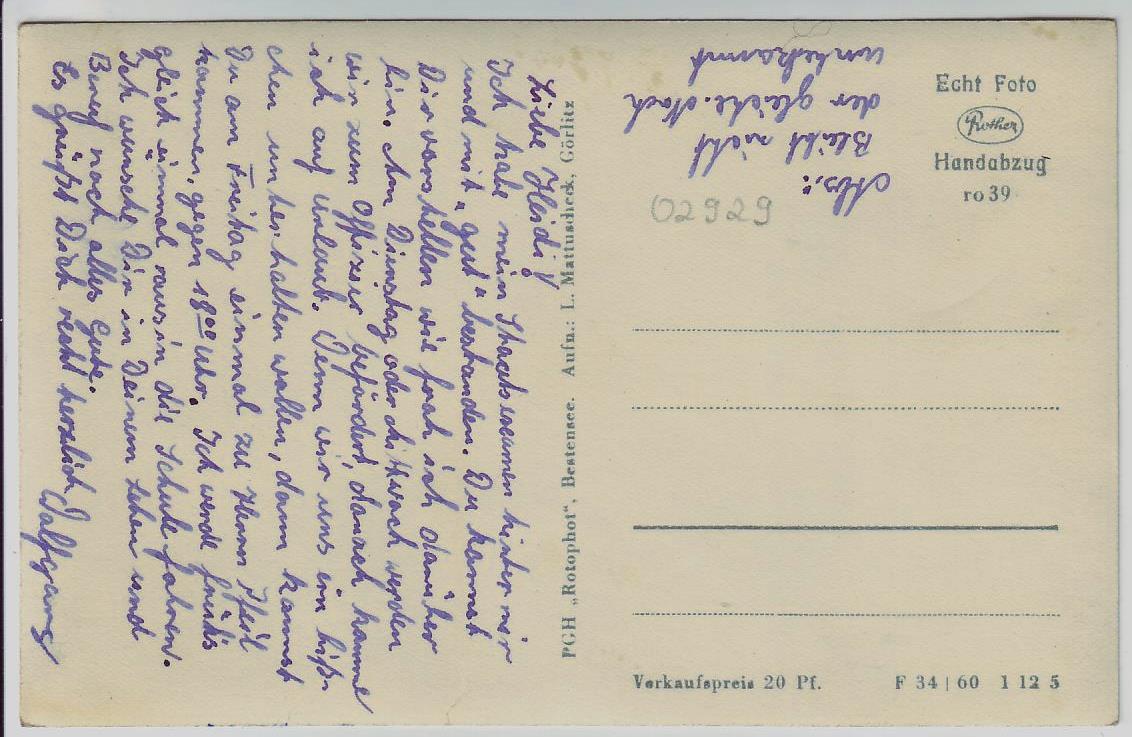 Liebe Heidi!
Ich habe mein Staatsexamen hinter mir
und mit „gut" bestanden. Du kannst
Dir vorstellen wie froh ich darüber
bin. Am Dienstag oder Mittwoch werden
wir zum Offizier befördert danach komme
ich auf Urlaub. Wenn wir uns ein biß-
chen unterhalten wollen, dann kannst
Du am Freitag einmal zu Herrn
kommen, gegen 18⁰⁰ Uhr. Ich werde
gleich einmal raus in die Schule fahren.
Ich wünsche Dir in Deinem Leben und
Beruf noch alles Gute.
Es grüßt Dich recht herzlich Wolfgang
Abs.:
Bleibt nicht
der gleiche. Noch
unbekannt
PGH „Rotophot", Bestensee. Aufn.: L. Mattuscheck, Görlitz
Echt Foto
Rother
Handabzug
ro 39
02929
Verkaufspreis 20 Pf. F 34 | 60 1 12 5